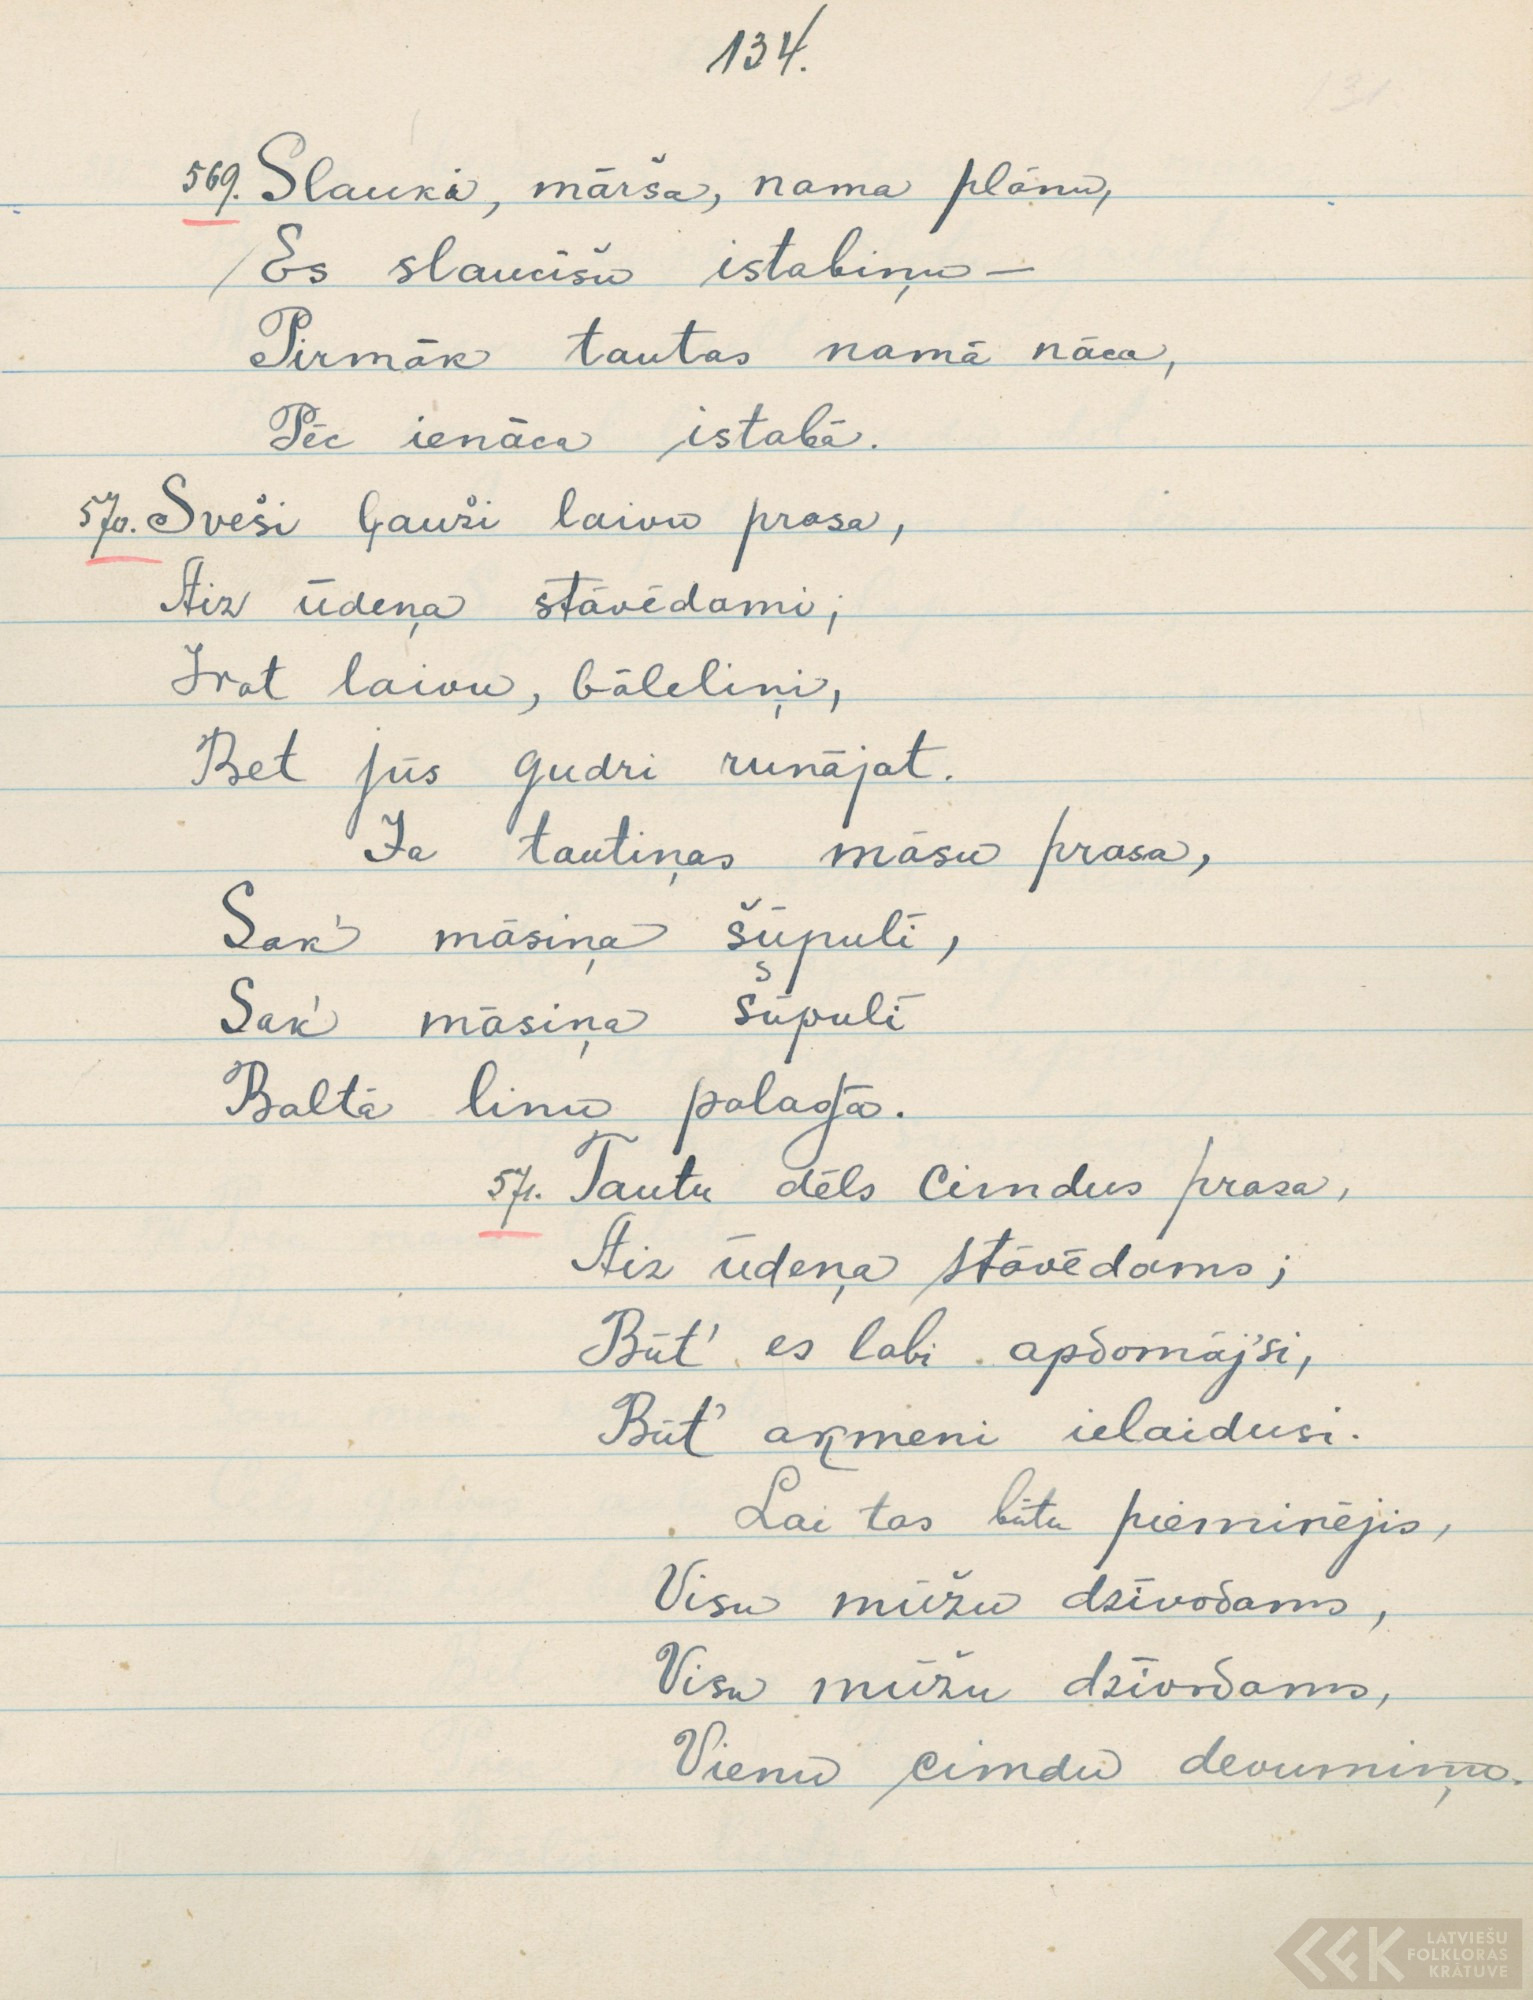 134.
569. Slauki, mārša, nama plānu,
Es slaucīšu istabiņu —
Pirmāk tautas namā nāca,
Pēc ienāca istabā.
570. Sveši ļauži laivu prasa,
Aiz ūdeņa stāvēdami;
Irat laivu, bāleliņi,
Bet jūs gudri runājat.
Ja tautiņas māsu prasa,
Sak' māsiņa šūpulī,
Sak' māsiņa šūpulī
Baltā linu palagā.
571. Tautu dēls cimdus prasa,
Aiz ūdeņa stāvēdams;
Būt' es labi apdomāj'si,
Būt' aķmeni ielaidusi.
Lai tas būtu pieminējis,
Visu mūžu dzīvodams,
Visu mūžu dzīvodams,
Vienu cimdu devumiņu.
LATVIEŠU
FOLKLORAS
KRĀTUVE